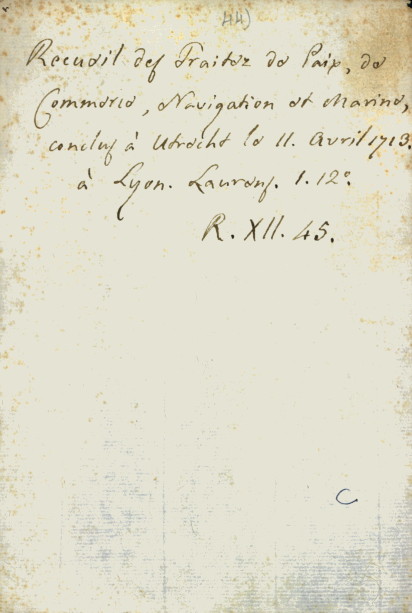 44)
Recueil des Traitez de Paix, de
Commerce, Navigation et Marine,
conclus à Utrecht le 11. Avril 1713.
à Lyon. Laurens. 1. 12°.
R. XII. 45.
C